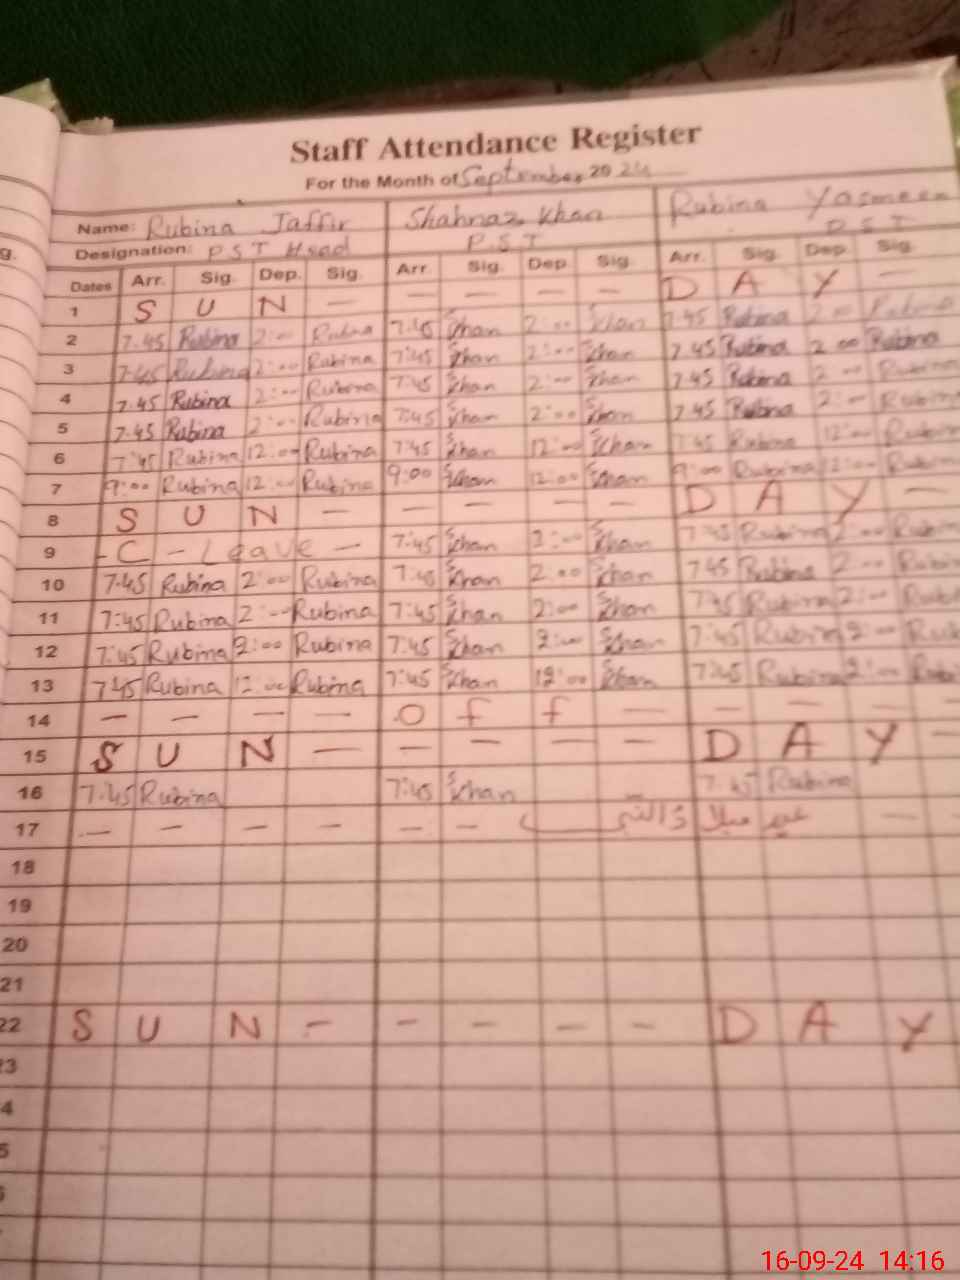 Staff Attendance Register
For the Month of September 2024
Name: Rubina Jaffir Shahnaz Khan Rubina Yasmeen
Designation: P S T Head P.S.T P S T
Dates Arr. Sig. Dep. Sig. Arr. Sig. Dep. Sig. Arr. Sig. Dep. Sig.
1 S U N — — — — — D A Y —
2 7.45 Rubina 2:00 Rubina 7:45 S Khan 2:00 S Khan 7.45 Rubina 2 00 Rubina
3 7:45 Rubina 2:00 Rubina 7:45 S Khan 2:00 S Khan 7.45 Rubina 2 00 Rubina
4 7.45 Rubina 2:00 Rubina 7:45 S Khan 2:00 S Khan 7.45 Rubina 2 00 Rubina
5 7.45 Rubina 2:00 Rubina 7:45 S Khan 2:00 S Khan 7.45 Rubina 2:00 Rubina
6 7:45 Rubina 12:00 Rubina 7:45 S Khan 12:00 S Khan 7:45 Rubina 12:00 Rubin
7 9:00 Rubina 12:00 Rubina 9:00 S Khan 12:00 S Khan 9:00 Rubina 12:00 Rubin
8 S U N — — — — — D A Y —
9 - C - Leave — 7:45 S Khan 2:00 S Khan 7:45 Rubina 2:00 Rubin
10 7.45 Rubina 2:00 Rubina 7:45 S Khan 2:00 S Khan 7.45 Rubina 2:00 Rubin
11 7:45 Rubina 2:00 Rubina 7:45 S Khan 2:00 S Khan 7:45 Rubina 2:00 Rub
12 7:45 Rubina 2:00 Rubina 7:45 S Khan 2:00 S Khan 7:45 Rubina 2:00 Rub
13 7:45 Rubina 12:00 Rubina 7:45 S Khan 12:00 S Khan 7:45 Rubina 12:00 Rubi
14 — — — — O f f — — — — —
15 S U N — — — — — D A Y —
16 7.45 Rubina 7:45 S Khan 7.45 Rubina
17 — — — — — — عید میلاد النبی —
18
19
20
21
22 S U N — — — — — D A Y
23
16-09-24 14:16